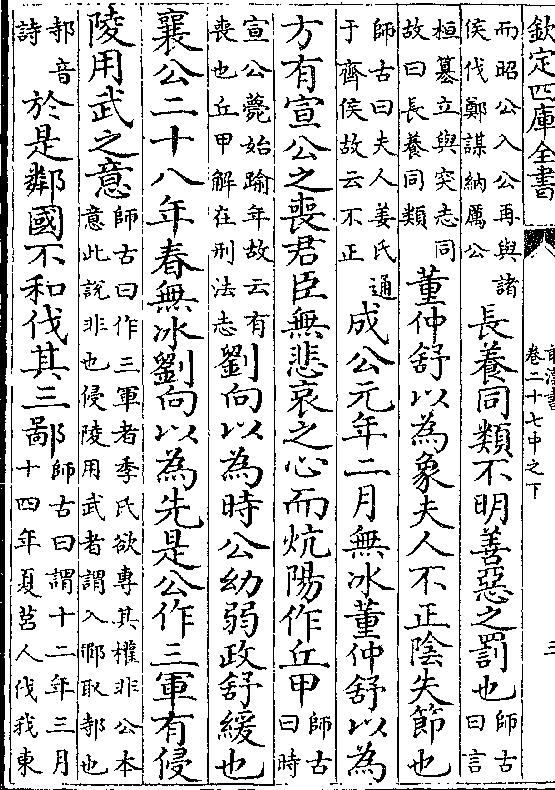 欽定四庫全書
前漢書
卷二十七中之下
三
而昭公入公再與諸
侯伐鄭謀納厲公
長養同類不明善惡之罰也
師古
曰言
桓篡立與突志同
故曰長養同類
董仲舒以為象夫人不正陰失節也
師古曰夫人姜氏通
于齊侯故云不正
成公元年二月無冰董仲舒以為
方有宣公之喪君臣無悲哀之心而炕陽作丘甲
師古
曰時
宣公薨始踰年故云有
喪也丘甲解在刑法志
劉向以為時公幼弱政舒緩也
襄公二十八年春無冰劉向以為先是公作三軍有侵
陵用武之意
師古曰作三軍者季氏欲專其權非公本
意此說非也侵陵用武者謂入鄆取邿也
邿音
詩
於是鄰國不和伐其三鄙
師古曰謂十二年三月
十四年夏莒人伐我東